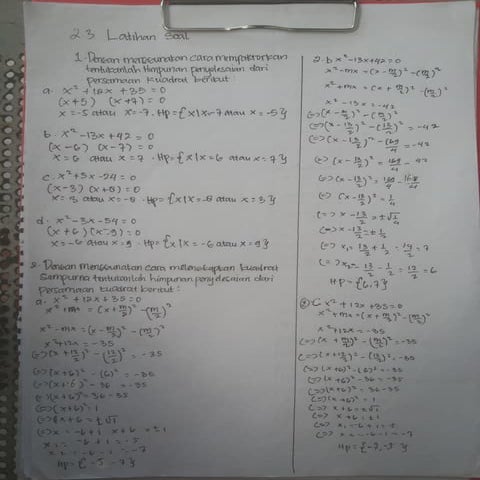 2.3 Latihan Soal
1. Dengan menggunakan cara memfaktorkan
tentukanlah himpunan penyelesaian dari
Persamaan kuadrat berikut :
a. x² + 12x + 35 = 0
(x+5) (x+7) = 0
x = -5 atau x = -7. Hp = {x|x = -7 atau x = -5}
b. x² - 13x + 42 = 0
(x-6) (x-7) = 0
x = 6 atau x = 7. Hp = {x|x = 6 atau x = 7}
c. x² + 5x - 24 = 0
(x-3) (x+8) = 0
x = 3 atau x = -8. Hp = {x|x = -8 atau x = 3}
d. x² - 3x - 54 = 0
(x+6) (x-9) = 0
x = -6 atau x = 9. Hp = {x|x = -6 atau x = 9}
2. Dengan menggunakan cara melengkapkan kuadrat
Sampurna tentukanlah himpunan penyelesaian dari
Persamaan kuadrat berikut :
a. x² + 12x + 35 = 0
x² + mx = (x + m/2)² - (m/2)²
x² - mx = (x - m/2)² - (m/2)²
x² + 12x = -35
(=> (x + 12/2)² - (12/2)² = -35
(=> (x+6)² - (6)² = -35
(=> (x+6)² - 36 = -35
(=> (x+6)² = 36 - 35
(=> (x+6)² = 1
(=> x+6 = ±√1
(=> x = -6 ± 1 x + 6 = ±1
x₁ = -6 + 1 = -5
x₂ = -6 - 1 = -7
Hp = {-5 -7}
2. b x² - 13x + 42 = 0
x² - mx = (x - m/2)² - (m/2)²
x² + mx = (x + m/2)² - (m/2)²
x² - 13x = -42
(=> (x - m/2)² - (m/2)²
(=> (x - 13/2)² - (13/2)² = -42
(=> (x - 13/2)² - 169/4 = -42
(=> (x - 13/2)² = 169/4 - 42
(=> (x - 13/2)² = 169/4 - 168/4
(=> (x - 13/2)² = 1/4
(=> x - 13/2 = ±√1/4
(=> x - 13/2 = ± 1/2
(=> x₁ = 13/2 + 1/2 = 14/2 = 7
(=> x₂ = 13/2 - 1/2 = 12/2 = 6
HP = {6,7}
C x² + 12x + 35 = 0
x² + mx = (x + m/2)² - (m/2)²
x² + 12x = -35
(=> (x + m/2)² - (m/2)² = -35
(=> (x + 12/2)² - (12/2)² = -35
(=> (x+6)² - (6)² = -35
(=> (x+6)² - 36 = -35
(=> (x+6)² = 36 - 35
(=> (x+6)² = 1
(=> x+6 = ±√1
(=> x+6 = ±1
(=> x₁ = -6 + 1 = -5
(=> x₂ = -6 - 1 = -7
Hp = {-7, -5}